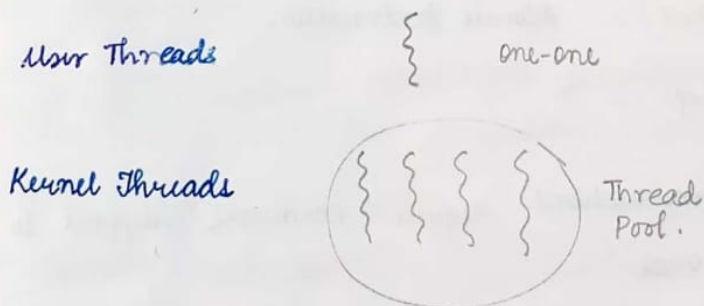 User Threads one-one
Kernel Threads
Thread
Pool.